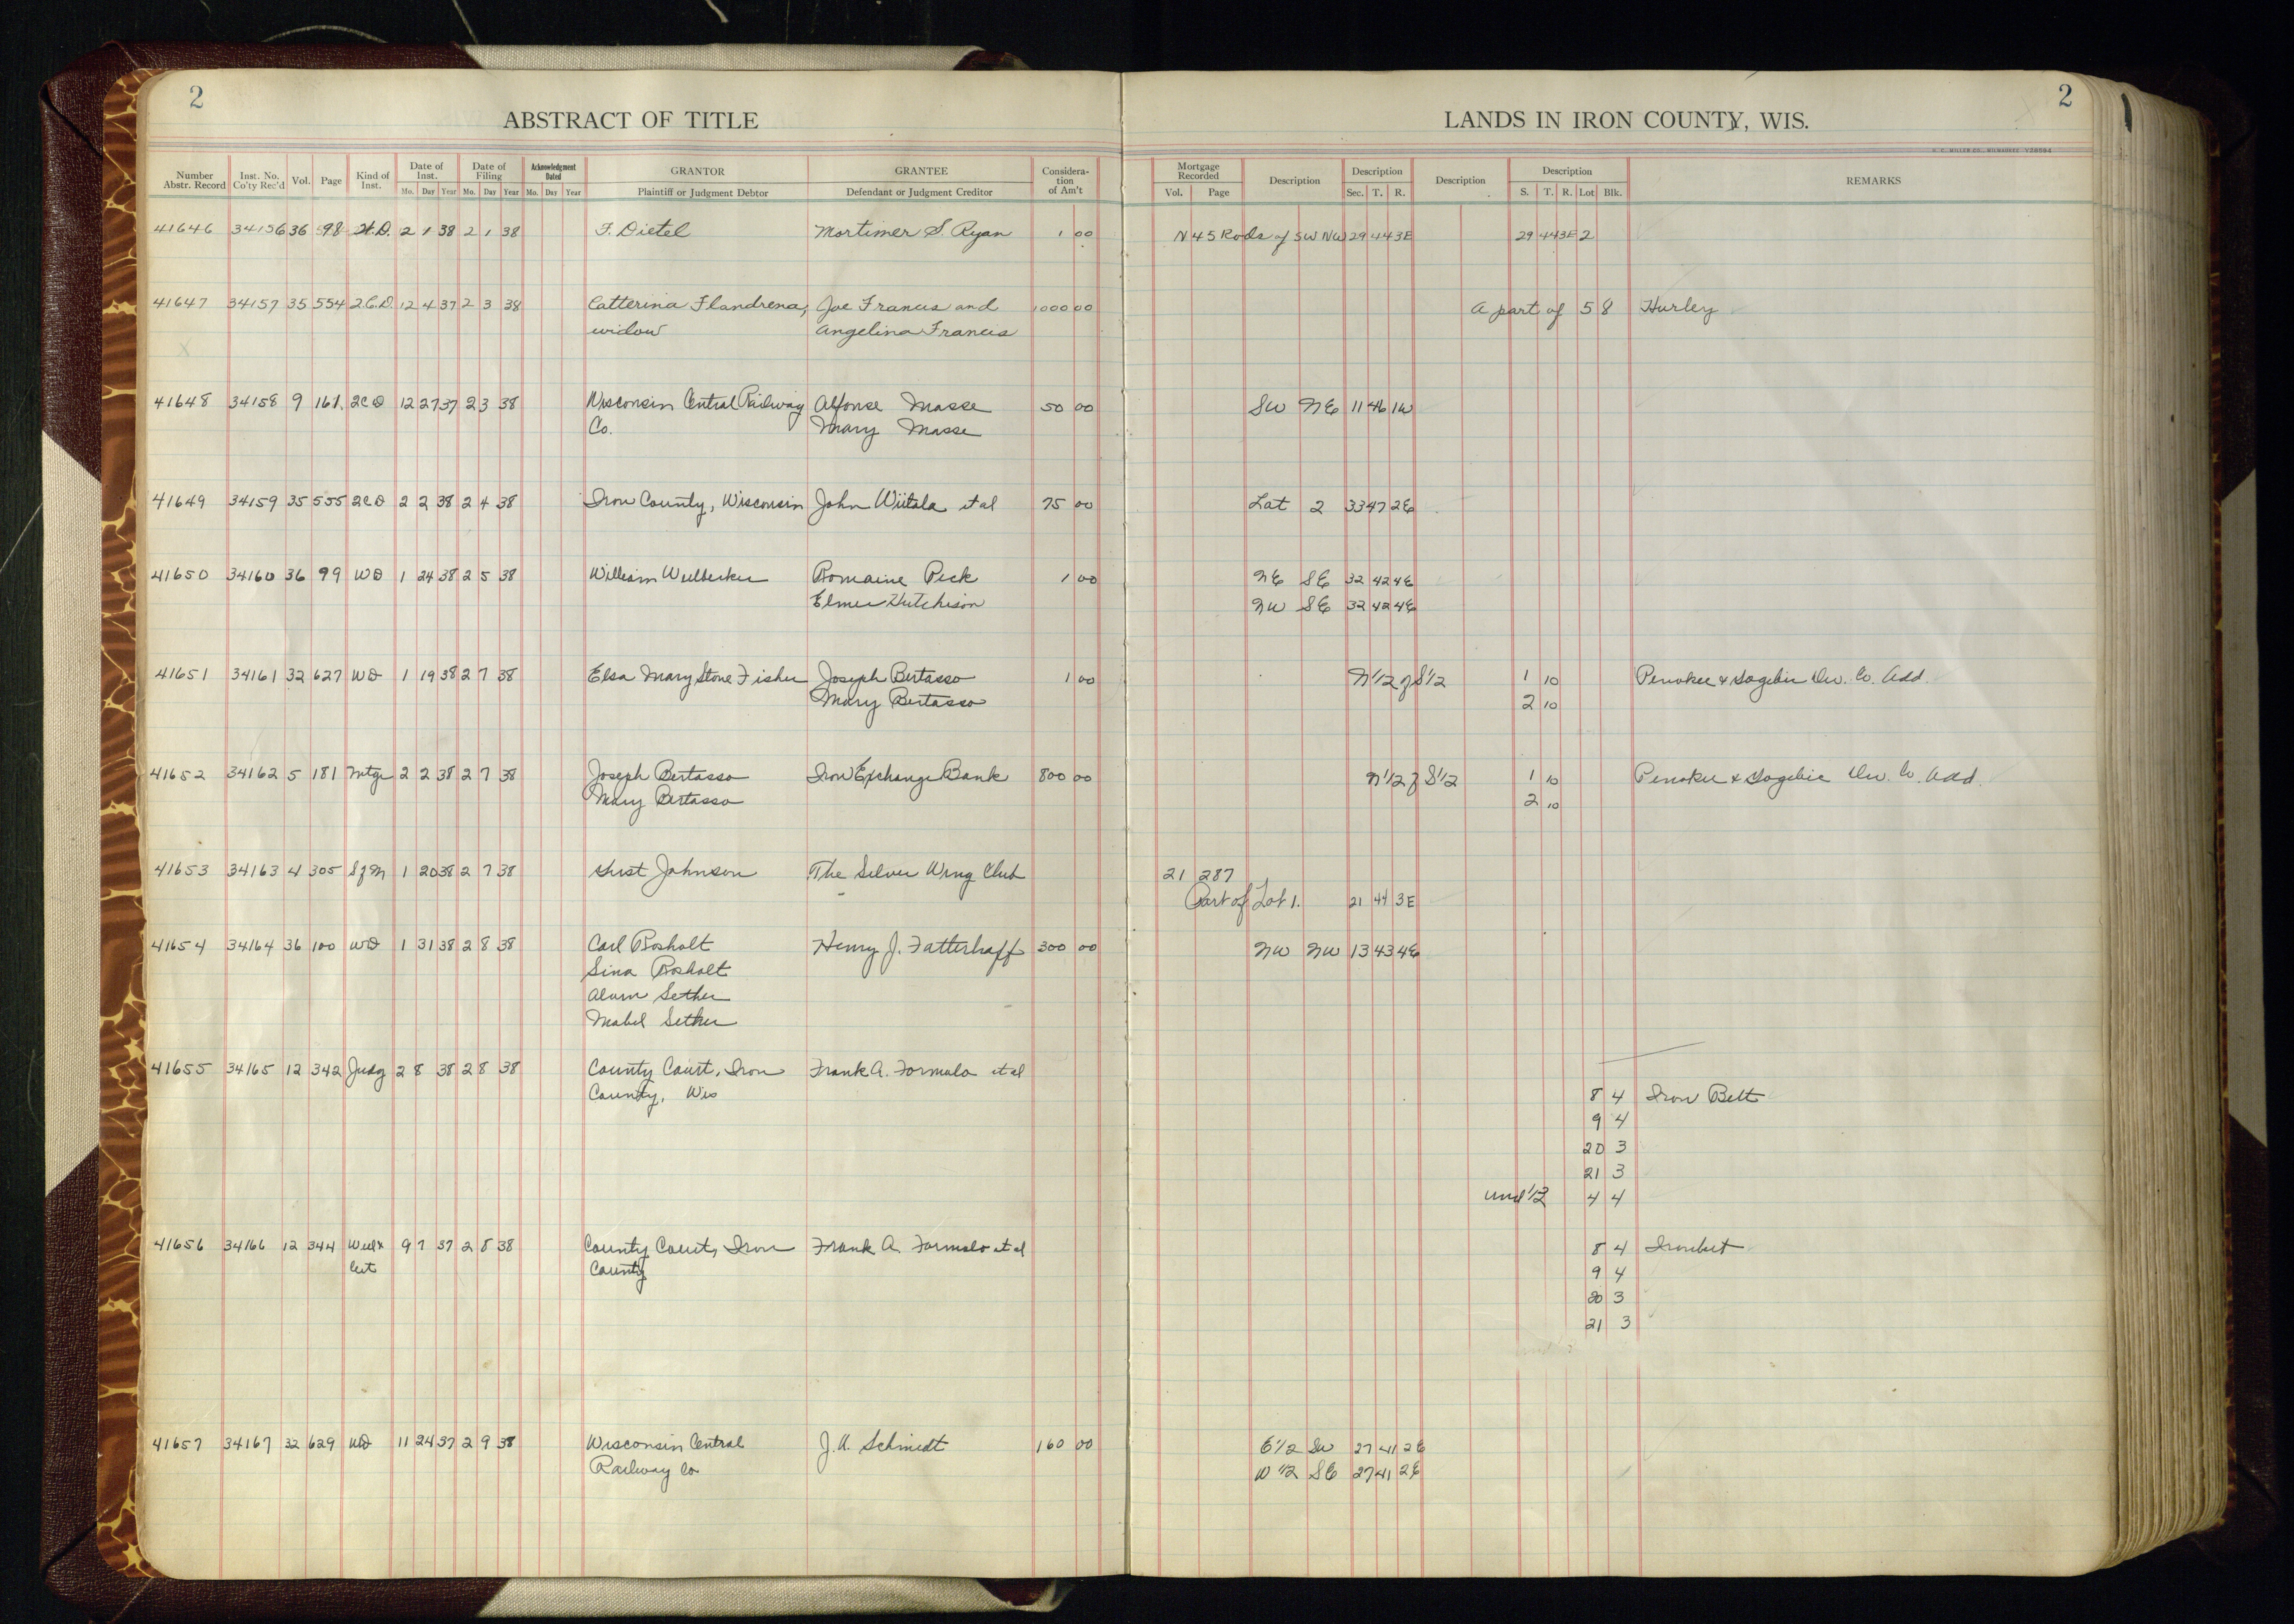 2
2
ABSTRACT OF TITLE
LANDS IN IRON COUNTY, WIS.
Number Abstr. Record Inst. No. Co'ty Rec'd Vol. Page Kind of Inst. Date of Inst. Mo. Day Year Date of Filing Mo. Day Year Acknowledgment Dated Mo. Day Year GRANTOR Plaintiff or Judgment Debtor GRANTEE Defendant or Judgment Creditor Consideration of Am't Mortgage Recorded Vol. Page Description Description Sec. T. R. Description Description S. T. R. Lot Blk. REMARKS
41646 34156 36 98 W.D. 2 1 38 2 1 38 F. Dietel Mortimer S. Ryan 1 00 N 45 Rods of SW NW 29 44 3E 29 44 3E 2
41647 34157 35 554 2.C.D. 12 4 37 2 3 38 Catterina Flandrena, Joe Francis and 1000 00 A part of 5 8 Hurley
widow Angelina Francis
41648 34158 9 161 2CD 12 27 37 2 3 38 Wisconsin Central Railway Alfonse Masse 50 00 SW NE 11 46 1W
Co. Mary Masse
41649 34159 35 555 2CD 2 2 38 2 4 38 Iron County, Wisconsin John Wiitala et al 75 00 Lot 2 33 47 2E
41650 34160 36 99 WD 1 24 38 2 5 38 William Romaine Peck 1 00 NE SE 32 42 4E
Elmer Hutchison NW SE 32 42 4E
41651 34161 32 627 WD 1 19 38 2 7 38 Elsa Mary Stone Fisher Joseph Bertasso 1 00 N 1/2 of S 1/2 1 10 Penokee & Gogebic Dev. Co. Add.
Mary Bertasso 2 10
41652 34162 5 181 Mtge 2 2 38 2 7 38 Joseph Bertasso Iron Exchange Bank 800 00 N 1/2 of S 1/2 1 10 Penokee & Gogebic Dev. Co. Add.
Mary Bertasso 2 10
41653 34163 4 305 S of M 1 20 38 2 7 38 Johnson The Silver Wing Club 21 287
Part of Lot 1. 21 44 3E
41654 34164 36 100 WD 1 31 38 2 8 38 Carl Rosholt Henry J. Fatterhoff 300 00 NW NW 13 43 4E
Sina Rosholt
Alvin Sether
Mabel Sether
41655 34165 12 342 Judg 2 8 38 2 8 38 County Court, Iron Frank A. Formolo et al
County, Wis 8 4 Iron Belt
9 4
20 3
21 3
und 1/2 4 4
41656 34166 12 344 Will & 9 7 37 2 8 38 County Court, Iron Frank A. Formolo et al 8 4 Ironbelt
Cert County 9 4
20 3
21 3
41657 34167 32 629 WD 11 24 37 2 9 38 Wisconsin Central J. A. Schmidt 160 00 E 1/2 SW 27 41 2E
Railway Co W 1/2 SE 27 41 2E